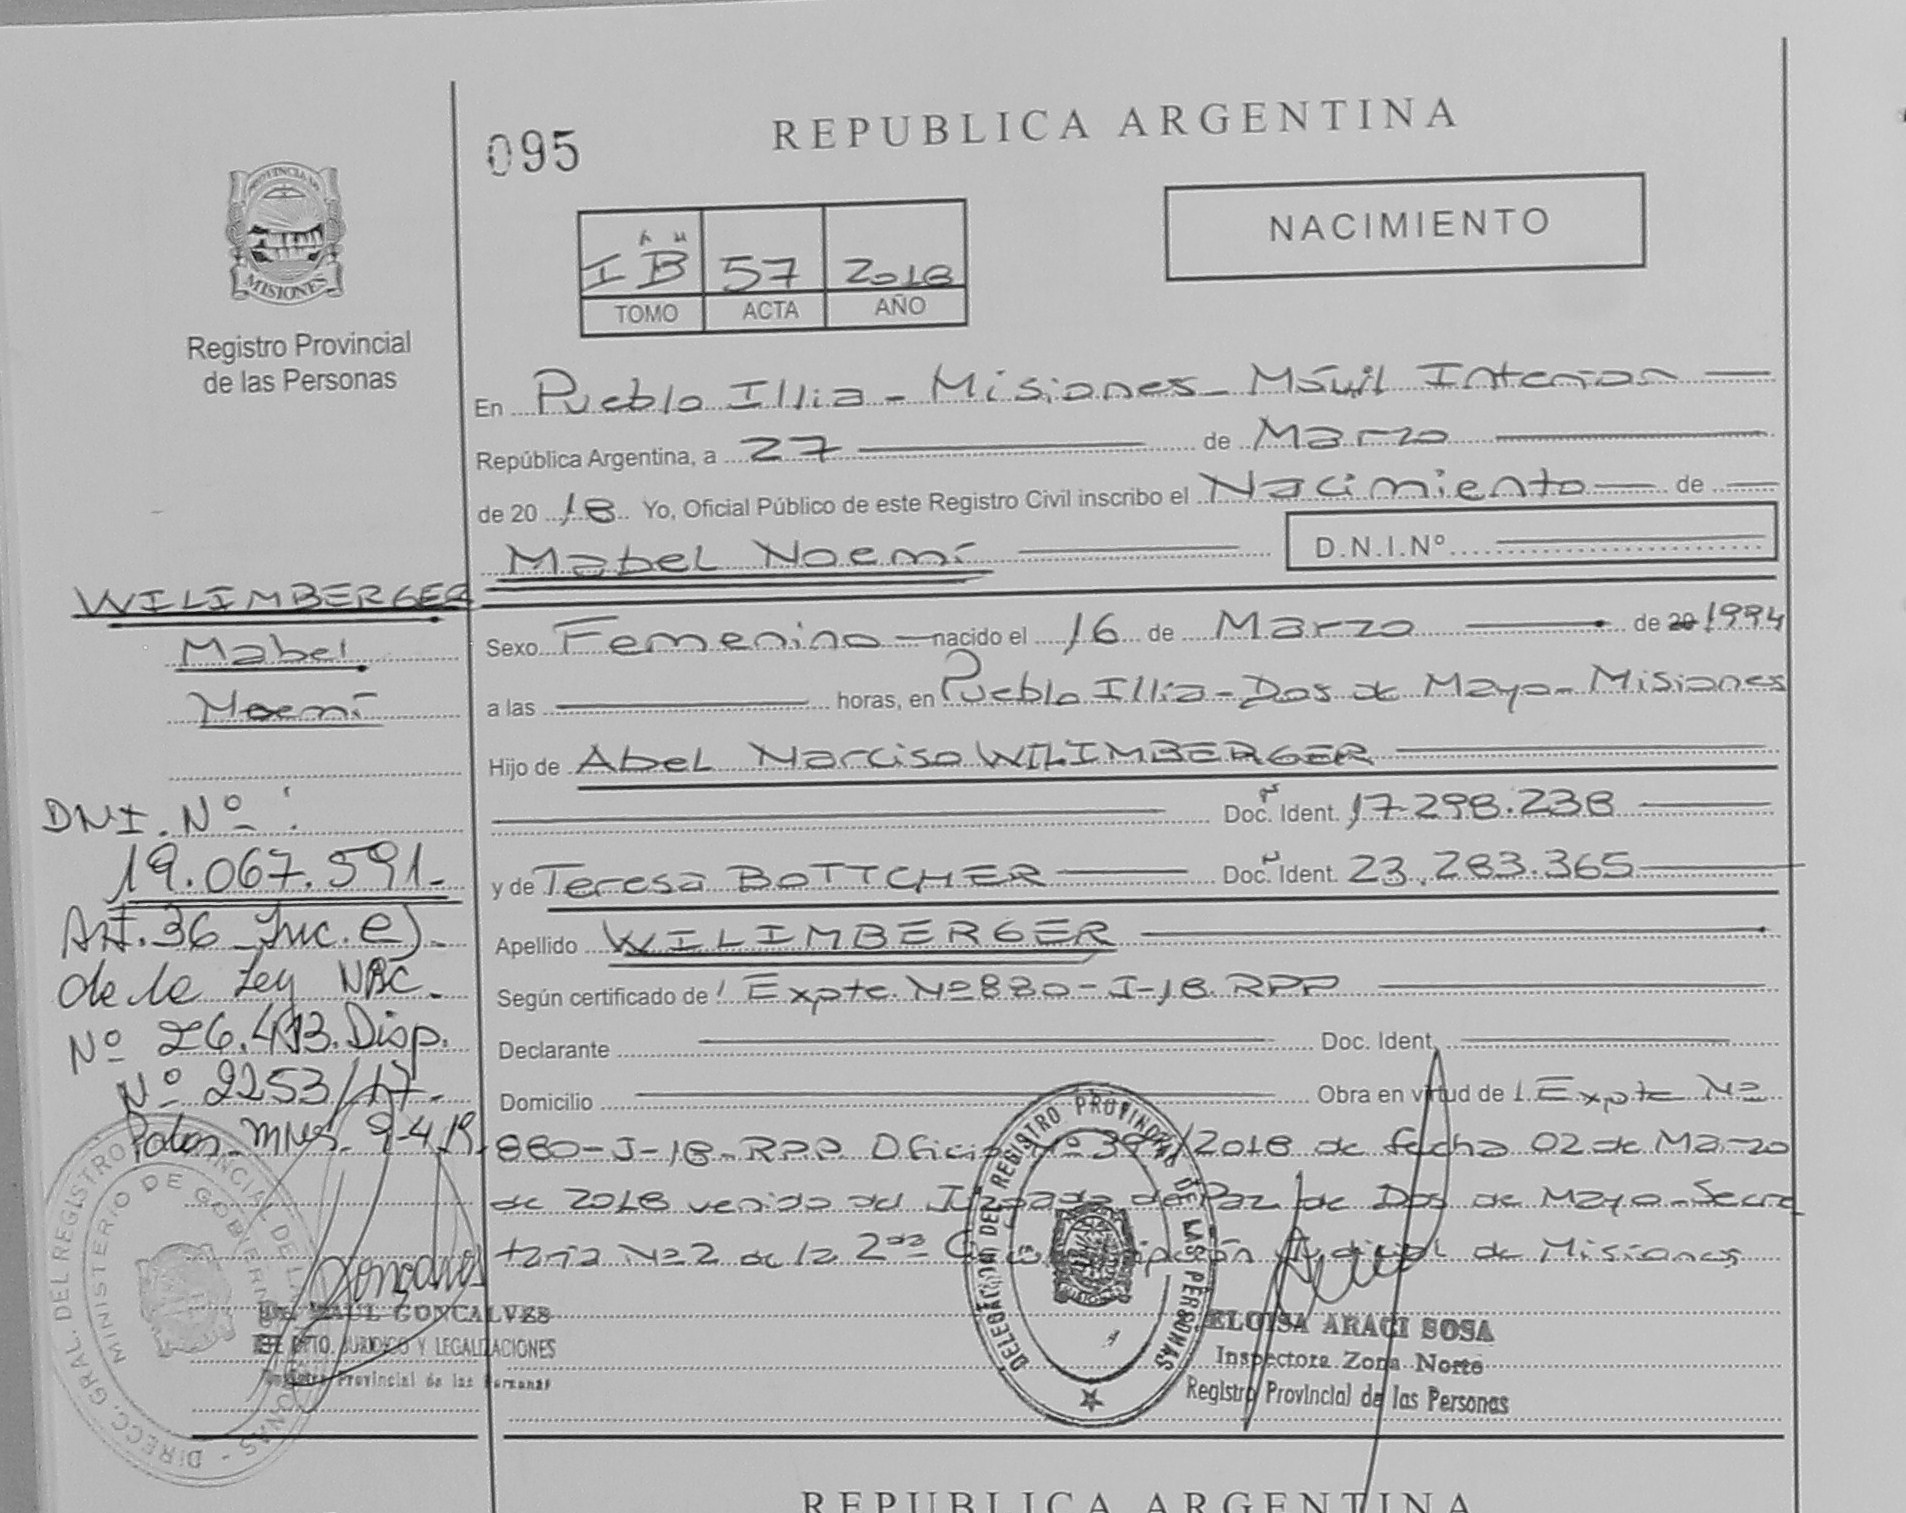 095
REPUBLICA ARGENTINA
PROVINCIA DE
MISIONES
Registro Provincial
de las Personas
NACIMIENTO
I "B" 57 2018
TOMO ACTA AÑO
En Pueblo Illia - Misiones - Móvil Interior
República Argentina, a 27 de Marzo
de 20 18 Yo, Oficial Público de este Registro Civil inscribo el Nacimiento de
Mabel Noemí D.N.I.Nº
Sexo Femenino nacido el 16 de Marzo de 20 1994
a las horas, en Pueblo Illia - Dos de Mayo - Misiones
Hijo de Abel Narciso WILIMBERGER
Doc. Ident. 17.298.238
y de Teresa BOTTCHER Doc. Ident. 23.283.365
Apellido WILIMBERGER
Según certificado de Expte. Nº 880-J-18. RPP
Declarante Doc. Ident.
Domicilio Obra en virtud de Expte Nº
880-J-18-RPP. Oficio Nº /2018 de fecha 02 de Marzo
de 2018 venido del Juzgado de Paz de Dos de Mayo - Secre
taría Nº 2 de la 2da Circunscripción Judicial de Misiones
WILIMBERGER
Mabel
Noemí
DNI. Nº :
19.067.591-
Art. 36 Inc. e)-
de la Ley NAC.
Nº 26.413. Disp.
Nº 2253/17-
Pdas. Mnes. 9-4-18.
DIRECC. GRAL. DEL REGISTRO PROVINCIAL DE LAS PERSONAS
MINISTERIO DE GOBIERNO
RAUL GONCALVES
DPTO. JURIDICO Y LEGALIZACIONES
Registro Provincial de las Personas
DELEGACION DEL REGISTRO PROVINCIAL DE LAS PERSONAS
ELOISA ARACI SOSA
Inspectora Zona Norte
Registro Provincial de las Personas
REPUBLICA ARGENTINA